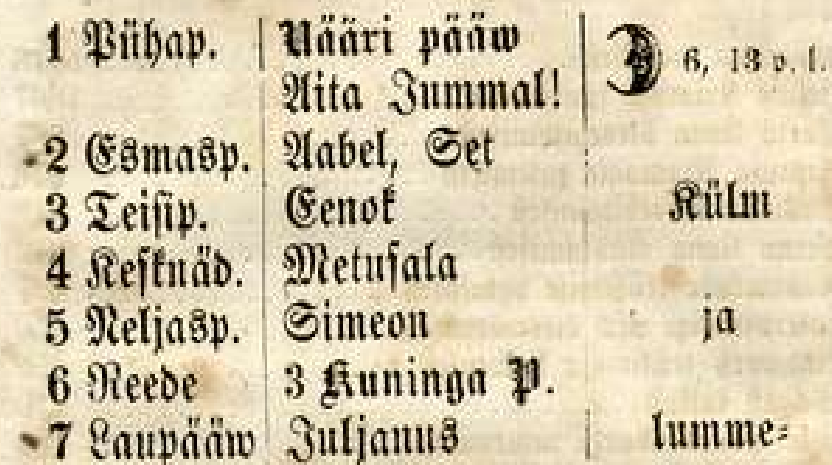 1 Pühap. Nääri pääw 6, 13 p. l.
Aita Jummal!
2 Esmasp. Aabel, Set
3 Teisip. Eenok Külm
4 Kesknäd. Metusala
5 Neljasp. Simeon ja
6 Reede 3 Kuninga P.
7 Laupääw Juljanus lumme-